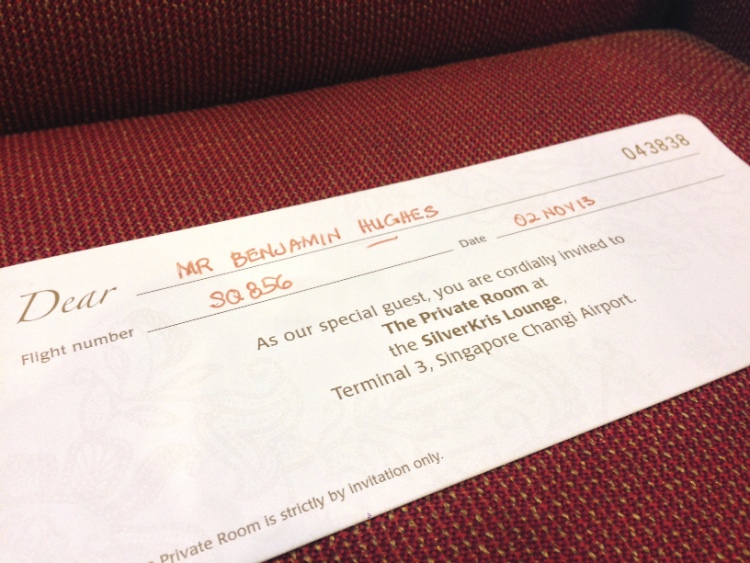 043838
Dear MR BENJAMIN HUGHES
Flight number SQ856 Date 02 NOV 13
As our special guest, you are cordially invited to
The Private Room at
the SilverKris Lounge,
Terminal 3, Singapore Changi Airport.
Private Room is strictly by invitation only.